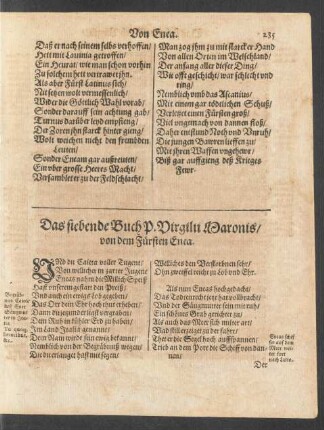 Von Enea.
235
Daß er nach seinem selbs verhoffen/
Hett mit Lauinia getroffen.
Ein Heurat/ wie man schon vorhin
Zu solchem hett vertrawet jhn.
Als aber Fürst Latinus sich/
Nit sehen wolt vermessenlich/
Wider die Göttlich Wahl vorab/
Sonder darauff sein achtung gab/
Turnus darüber leid empfieng/
Da Zoren jhn starck hinder gieng/
Wolt weichen nicht den frembden
Leuten/
Sonder Eneam gar außreuten/
Ein vber grosse Heeres Macht/
Versamblet er zu der Feldschlacht/
Man zog jhm zu mit starcker Hand
Von allen Orten im Welschland/
Der anfang aller dieser Ding/
Wie offt geschicht/ war schlecht und
ring/
Nemblich vmb das Ascanius/
Mit einem gar tödtlichen Schuß/
Verletzet einen Fürsten groß/
Viel vngemach von dannen floß/
Daher entstund Noth vnd Vnruh/
Die jungen Bawren lieffen zu/
Mit jhren Waffen vngehewr/
Biß gar auffgieng deß Krieges
Fewr.
Das siebende Buch P. Virgilii Maronis/
von dem Fürsten Enea.
VND du Caieta voller Tugent/
Von welicher in zarter Jugent
Eneas nahm die Milch-Speiß
Hast vnserem gestatt den Preiß/
Vnd auch ein ewigs Lob gegeben
Das Ort da dein Ehr hoch thut erheben/
Da man dich hat begraben/
Dem Ruh in kühler Erd zu haben/
Im Land Italia genannt/
Dem Nam wurde sein ewig bekannt/
Nemblich von der Begräbnuß wegen/
Welliches den Verstorbnen sehr/
Ohn zweiffel reicht zu Lob vnd Ehr.
Als nun Eneas hochgedacht/
Das Todtenrecht jetzt hat vollbracht/
Vnd der Säugmutter sein mit rath/
Ein schönes Grab gerichtet zu/
Als auch das Meer sich nider
Thet er die Segel hoch auffspannen/
Trieb an dem Port die Schiff von dannen/
Der